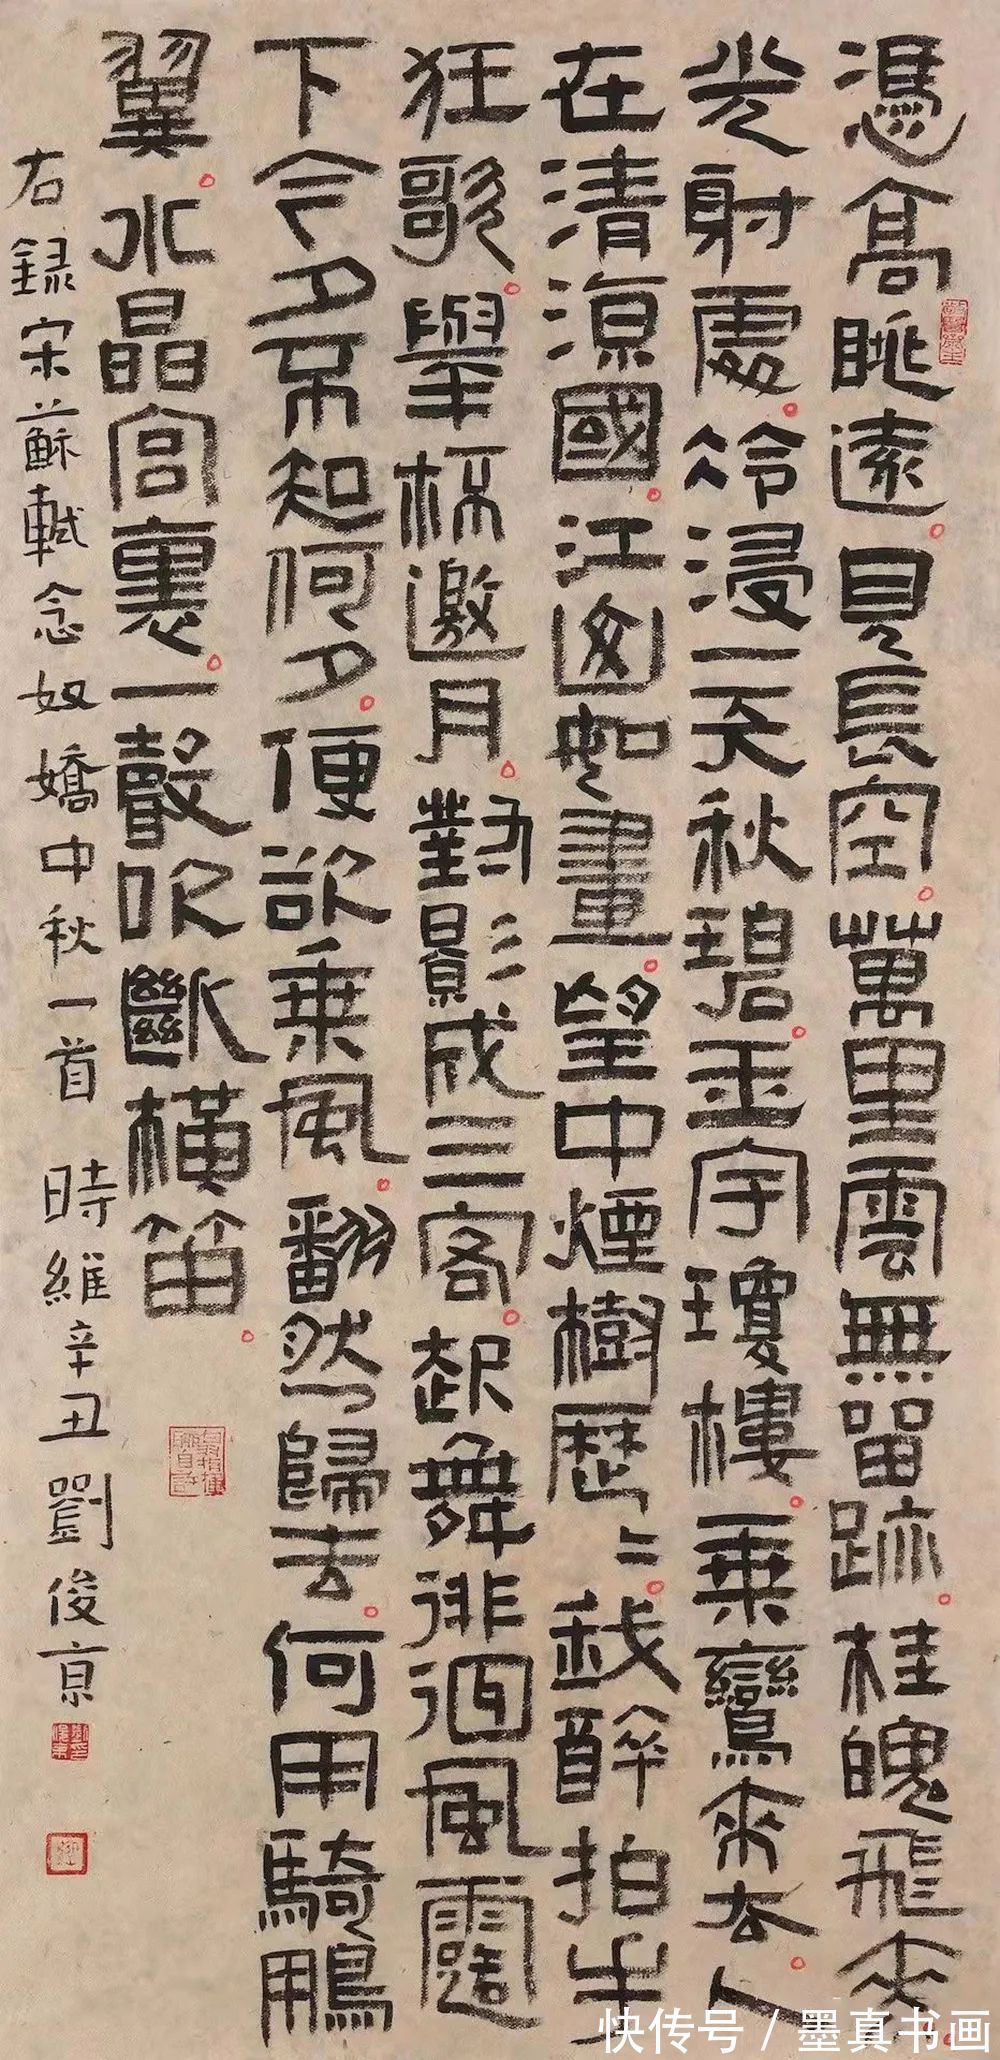 憑高眺遠。見長空。萬里雲無留跡。桂魄飛來。
光射處。冷浸一天秋碧。玉宇瓊樓。乘鸞來去。人
在清涼國。江山如畫。望中煙樹歷〻。我醉拍手
狂歌。舉杯邀月。對影成三客。起舞徘徊風露
下今夕不知何夕。便欲乘風。翻然歸去。何用騎鵬
翼。水晶宮裏。一聲吹斷橫笛。
右録宋蘇軾念奴嬌中秋一首 時維辛丑 劉俊京
快传号 / 墨真书画